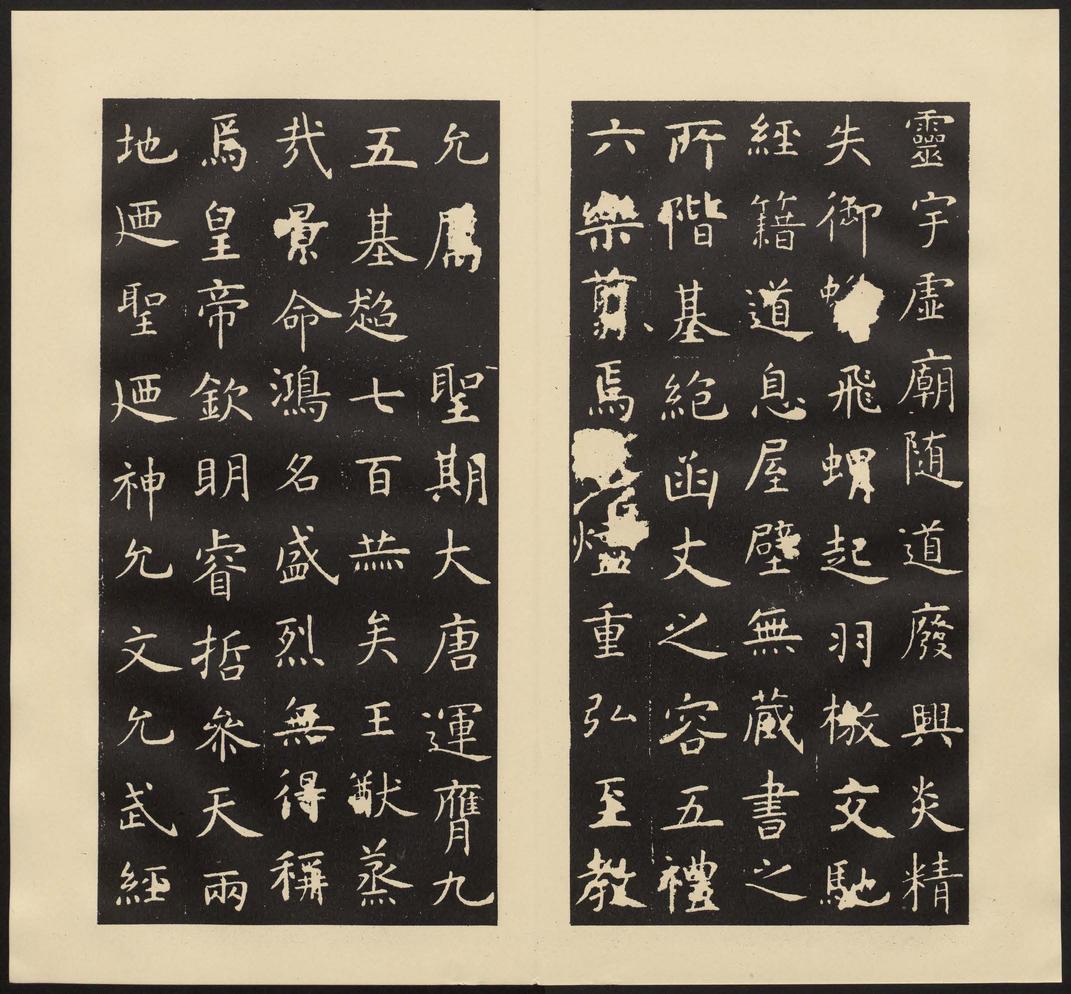 靈宇虛廟随道廢興炎精
失御蜂飛蝟起羽檄交馳
經籍道息屋壁無蔵書之
所階基絕函丈之容五禮
六樂翦焉燼重弘至教
允屬 聖期大唐運膺九
五基超七百赫矣王猷蒸
哉景命鴻名盛烈無得稱
焉皇帝欽明睿哲參天兩
地迺聖迺神允文允武經